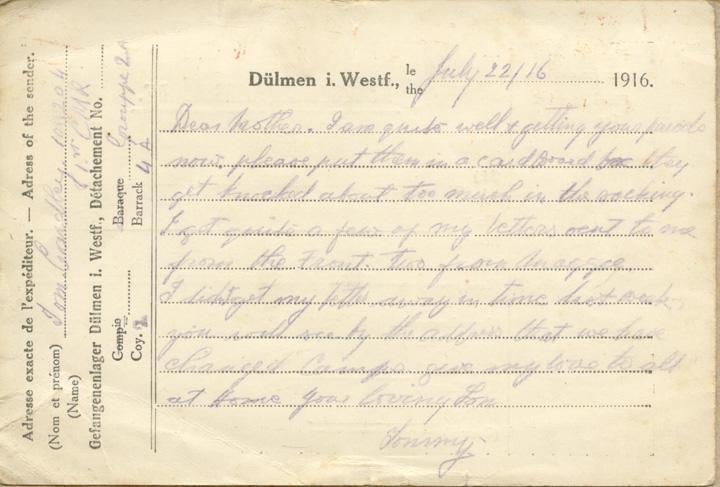 Dülmen i. Westf., le the July 22/16 1916.
Dear Mother. I am quite well & getting your parcels
now, please put them in a cardboard box they
get knocked about too much in the sacking.
I got quite a few of my letters sent to me
from the Front. Two from Maggie.
I didt get my letter away in time last week,
you will see by the address that we have
changed Camps give my love to all
at Home your loving Son
Tommy
Adresse exacte de l'expéditeur. — Adress of the sender.
(Nom et prénom) Tom
(Name) 1st CMR
Gefangenenlager Dülmen i. Westf., Détachement No.
Compie Baraque Grouppe 2A
Coy. 2 Barrack 4 A